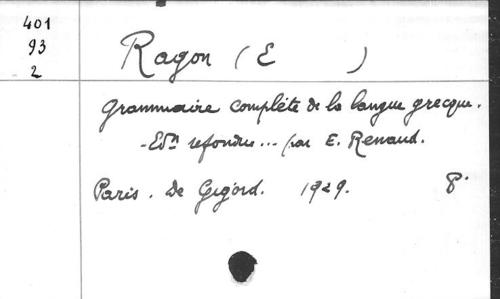 401
93
2
Ragon (E )
Grammaire complète de la langue grecque.
- Edn refondue... par E. Renaud.
Paris. De Gigord. 1929. 8°